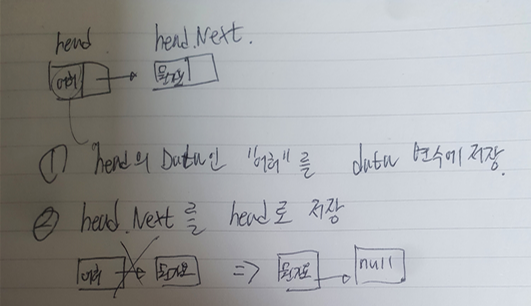 head head.Next.
어허 뭔지모
① head의 Data인 "어허"를 data 변수에 저장.
② head.Next를 head로 저장
어허 뭔지모 => 뭔지모 null